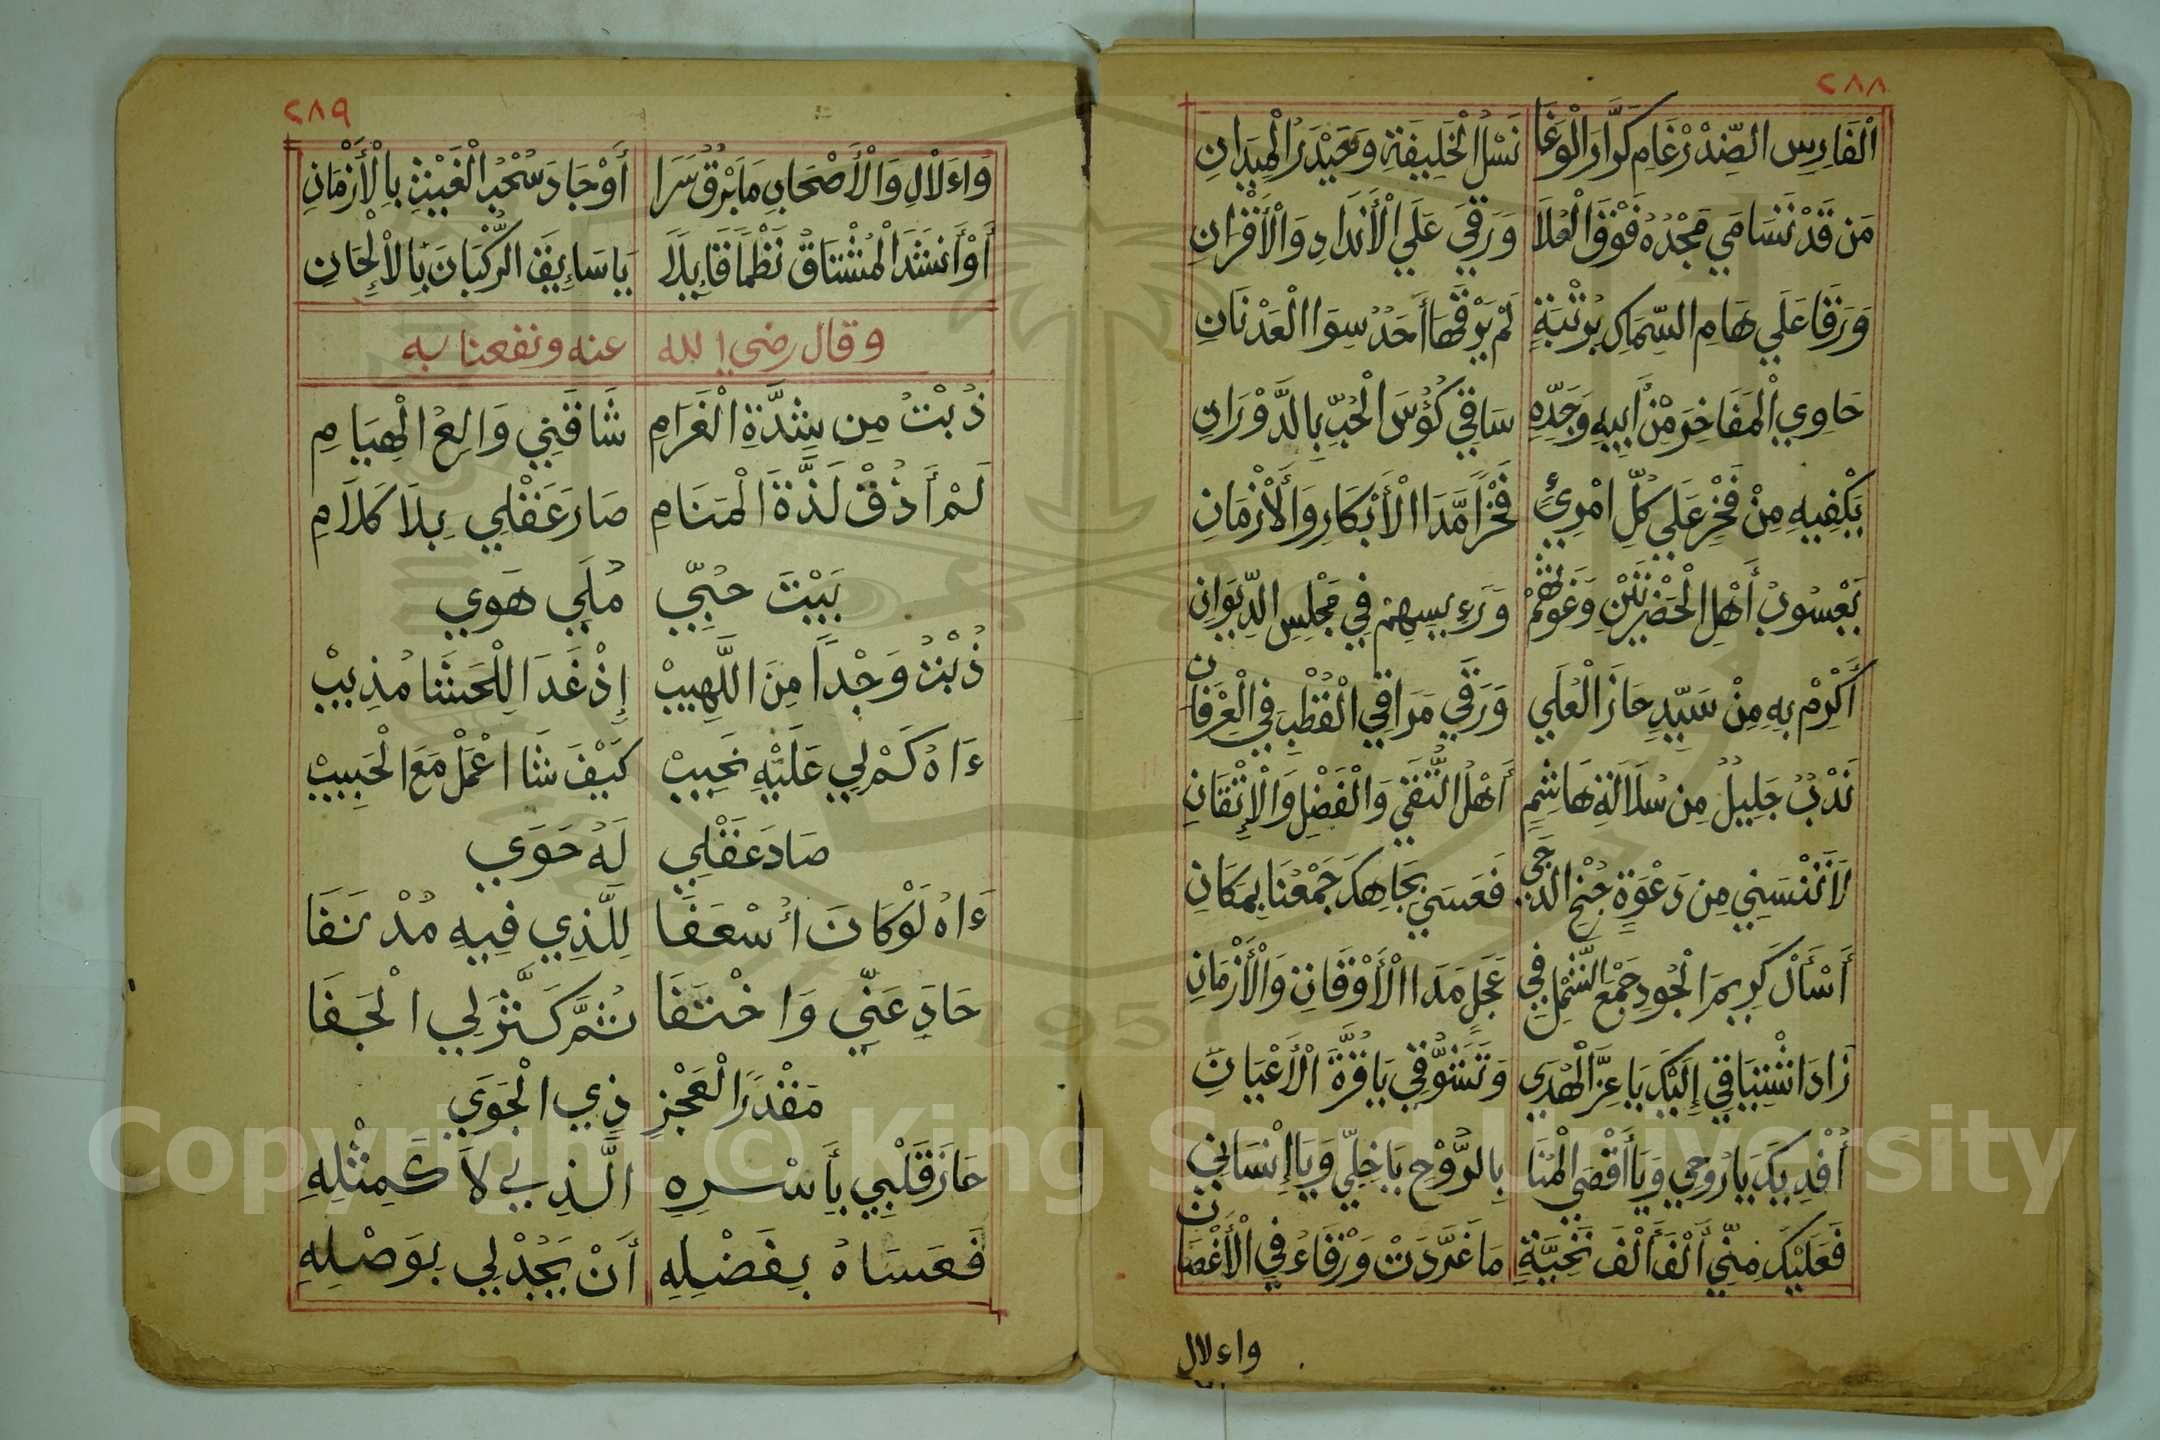 ٢٨٨
الْفَارِسِ الصِّنْدْرْغَامِ كَرَّارِ الْوَغَا نَسْلُ الْخَلِيفَةِ وَحَيْدَرُ الْمِيدَانِ
مَن قَدْ تَسَامَي مَجْدُهُ فَوْقَ الْعُلَا وَرَقَي عَلَي الْأَنْدَادِ وَالْأَقْرَانِ
وَرَقَا عَلَي هَامِ السِّمَاكِ بِرُتْبَةٍ لَمْ يَرْقَهَا أَحَدٌ سِوَا الْعَدْنَانِ
حَاوِي الْمَفَاخِرَ مْنْ أَبِيهِ وَجَدِّهِ سَاقِي كُؤُسَ الْحُبِّ بِالدَّوْرَانِ
يَكْفِيهِ مِنْ فَخْرٍ عَلَي كُلِّ امْرِئٍ فَخْرًا مَّدَا الْأَبْكَارِ وَالْأَزْمَانِ
يَعْسُوبُ أَهْلِ الْحَضْرَتَيْنِ وَغَوْثُهُمْ وَرَءِيسِهِمْ فِي مَجْلِسِ الدِّيوَانِ
أَكْرِمْ بِهِ مِنْ سَيِّدٍ حَازَ الْعُلَي وَرَقَي مَرَاقِي الْقُطْبِ فِي الْعِرْفَانِ
نَدْبٌ جَلِيلٌ مِن سُلَالَةِ هَاشِمٍ أَهْلُ التُّقَي وَالْفَضْلِ وَالْإِتْقَانِ
لَا تَنْسَنِي مِن دَعْوَةٍ جُنْحَ الدُّجَي فَعَسَي بِجَاهِكَ جَمْعُنَا بِمَكَانِ
أَسْأَلْ كَرِيمَ الْجُودِ جَمْعَ الشَّمْلِ فِي عَجَلٍ مَدَا الْأَوْقَاتِ وَالْأَزْمَانِ
زَادَ اشْتِيَاقِي إِلَيْكَ يَا عِزَّ الْهُدَي وَتَشَوُّقِي يَا قُرَّةَ الْأَعْيَانِ
أُفْدِيكَ يَا رُوحِي وَيَا أَقْصَي الْمُنَا بِالرُّوْحِ يَا خِلِّي وَيَا إِنْسَانِي
فَعَلَيْكَ مِنِّي أَلْفَ أَلْفَ تَحِيَّةٍ مَا غَرَّدَتْ وَرْقَاءُ فِي الْأَغْصَانِ
واءلال
٢٨٩
وَاءَلْالِ وَالْأَصْحَابِ مَا بَرْقٌ سَرَا أَوْ جَادَ سُحْبُ الْغَيْثِ بِالْأَزْمَانِ
أَوْ أَنشَدَ الْمُشْتَاقُ نَظْمًا قَايِلَا يَا سَايِقَ الرُّكْبَانَ بِالْإِلْحَانِ
وقال رضي الله عنه ونفعنا به
ذُبْتُ مِن شِدَّةِ الْغَرَامِ شَاقَنِي وَالِعُ الْهِيَامِ
لَمْ أَذُقْ لَذَّةَ الْمَنَامِ صَارَ عَقْلِي بِلَا كَلَامِ
بَيْتَ حِبِّي مُلَي هَوَي
ذُبْتُ وَجْدًا مِنَ اللَّهِيبْ إِذْ غَدَا لِلْحَشَا مُذِيبْ
ءَاهْ كَمْ لِي عَلَيْهِ نَحِيبْ كَيْفَ شَا اعْمَلْ مَعَ الْحَبِيبْ
صَادَ عَقْلِي لَهُ حَوَي
ءَاهْ لَوْ كَانَ أُسْعَفَا لِلَّذِي فِيهِ مُدْنَفَا
حَادَ عَنِّي وَاخْتَفَا ثُمَّ كَثَّرْ لِي الْجَفَا
مَقْدَرَ الْعَجْزِ ذِي الْجَوَي
حَازَ قَلْبِي بِأَسْرِهِ الَّذِي لَا كَمِثْلِهِ
فَعَسَاهُ بِفَضْلِهِ أَنْ يَجُدْ لِي بِوَصْلِهِ
Copyright © King Saud University
1957